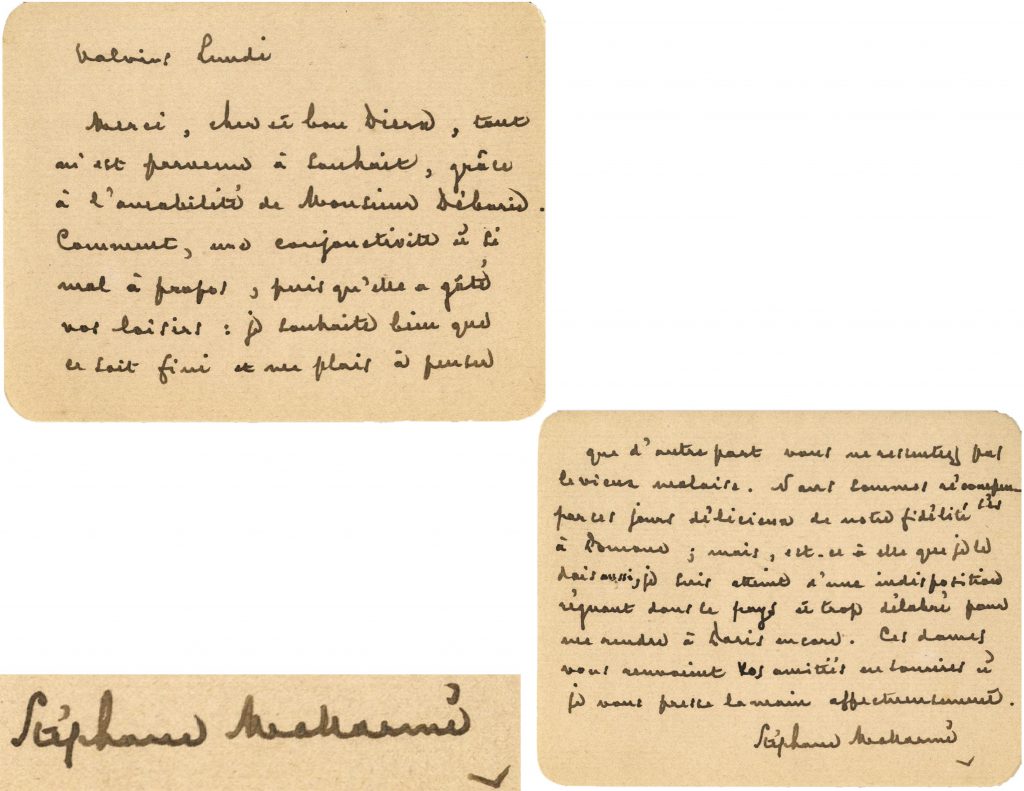 Valvins Lundi
Merci, cher et bon Dierx, tout
m'est parvenu à souhait, grâce
à l'amabilité de Monsieur
Comment, une conjonctivite et si
mal à propos, puisqu'elle a gâté
vos loisirs : je souhaite bien que
ce soit fini et me plais à penser
que d'autre part vous ne ressentez pas
le vieux malaise. Nous sommes récompen
sés
par ces jours délicieux de notre fidélité
à Pomone ; mais, est-ce à elle que je le
dois aussi, je suis atteint d'une indisposition
régnant dans le pays et trop délabré pour
me rendre à Paris encore. Ces dames
vous renvoient vos amitiés en sourires et
je vous presse la main affectueusement.
Stéphane Mallarmé
Stéphane Mallarmé